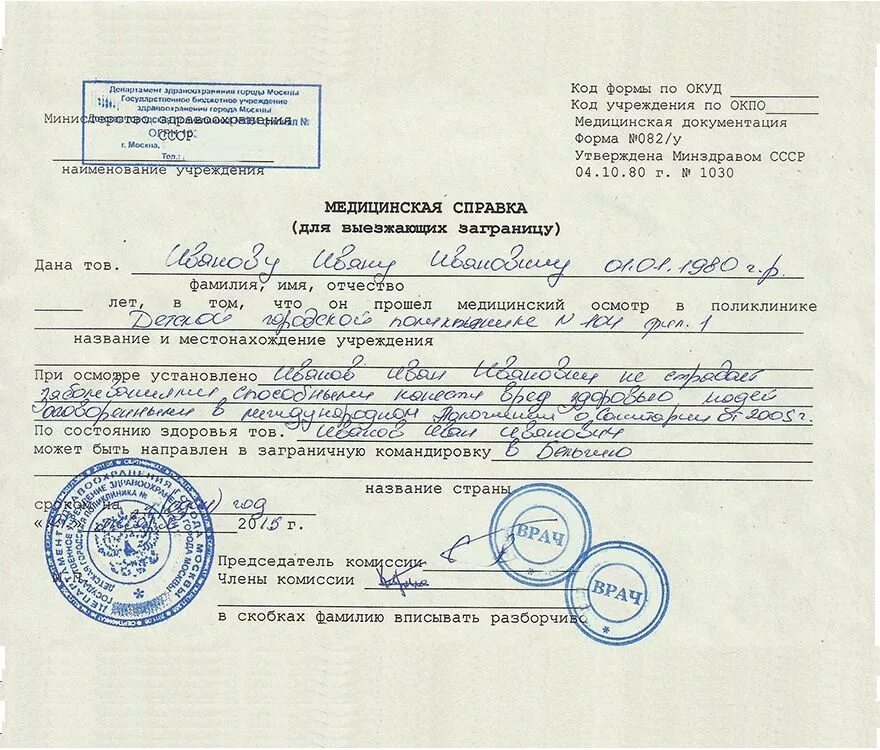 Департамент здравоохранения города Москвы
Государственное бюджетное учреждение
здравоохранения города Москвы
Министерство здравоохранения
СССР
ОГРН
г. Москва,
Тел.:
наименование учреждения
Код формы по ОКУД
Код учреждения по ОКПО
Медицинская документация
Форма №082/у
Утверждена Минздравом СССР
04.10.80 г. № 1030
МЕДИЦИНСКАЯ СПРАВКА
(для выезжающих заграницу)
Дана тов. Иванову Ивану Ивановичу 01.01.1980 г.р.
фамилия, имя, отчество
лет, в том, что он прошел медицинский осмотр в поликлинике
Детской городской поликлинике N 104 фил. 1
название и местонахождение учреждения
При осмотре установлено Иванов Иван Иванович не страдает
заболеваниями способными нанести вред здоровью людей
оговоренными в международном Положении о Санитарии от 2005 г.
По состоянию здоровья тов. Иванов Иван Иванович
может быть направлен в заграничную командировку в Бельгию
название страны
сроком на год
2015 г.
Председатель комиссии
Члены комиссии
в скобках фамилию вписывать разборчиво
ВРАЧ
ВРАЧ